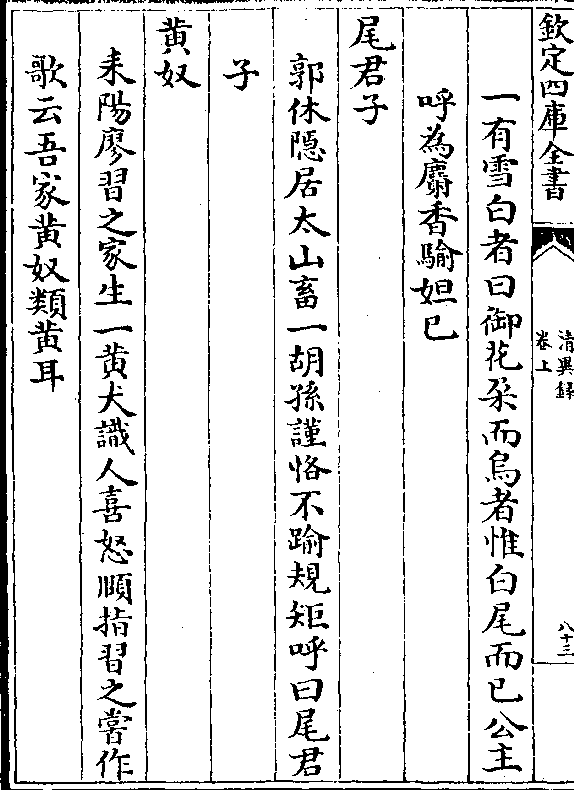 欽定四庫全書
清異録
卷上
八十三
一有雪白者曰御花朶而烏者惟白尾而已公主
呼為麝香騟妲已
尾君子
郭休隠居太山畜一胡孫謹恪不踰規矩呼曰尾君
子
黄奴
耒陽廖習之家生一黄犬識人喜怒順指習之嘗作
歌云吾家黄奴類黄耳